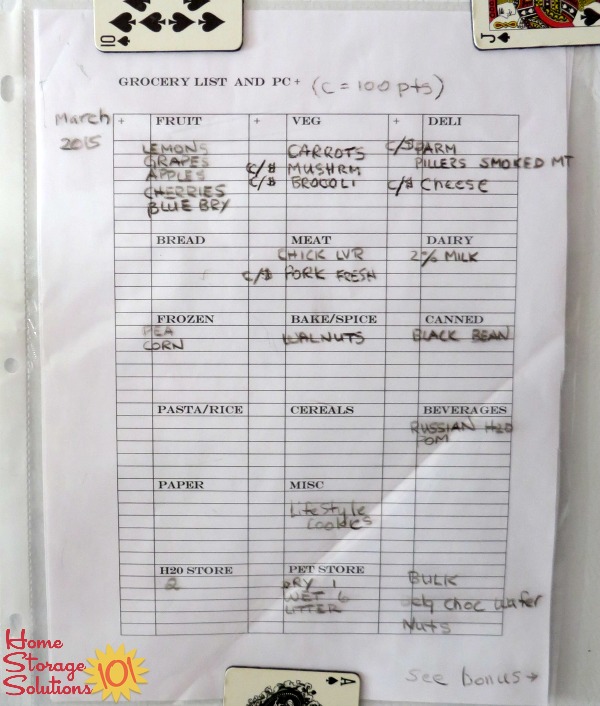 10
J
GROCERY LIST AND PC+ (C = 100 pts)
March
2015
+ FRUIT + VEG + DELI
LEMONS CARROTS C/$ PARM
GRAPES PILLERS SMOKED MT
APPLES C/$ MUSHRM
CHERRIES C/$ BROCOLI C/$ CHEESE
BLUE BRY
BREAD MEAT DAIRY
CHICK LVR 2% MILK
C/$ PORK FRESH
FROZEN BAKE/SPICE CANNED
PEA WALNUTS BLACK BEAN
CORN
PASTA/RICE CEREALS BEVERAGES
RUSSIAN H2O
POM
PAPER MISC
LifeStyle
Cookies
H20 STORE PET STORE BULK
2 DRY 1
WET 6 choc wafer
LITTER Nuts
see bonus→
Home
Storage
Solutions 101
A